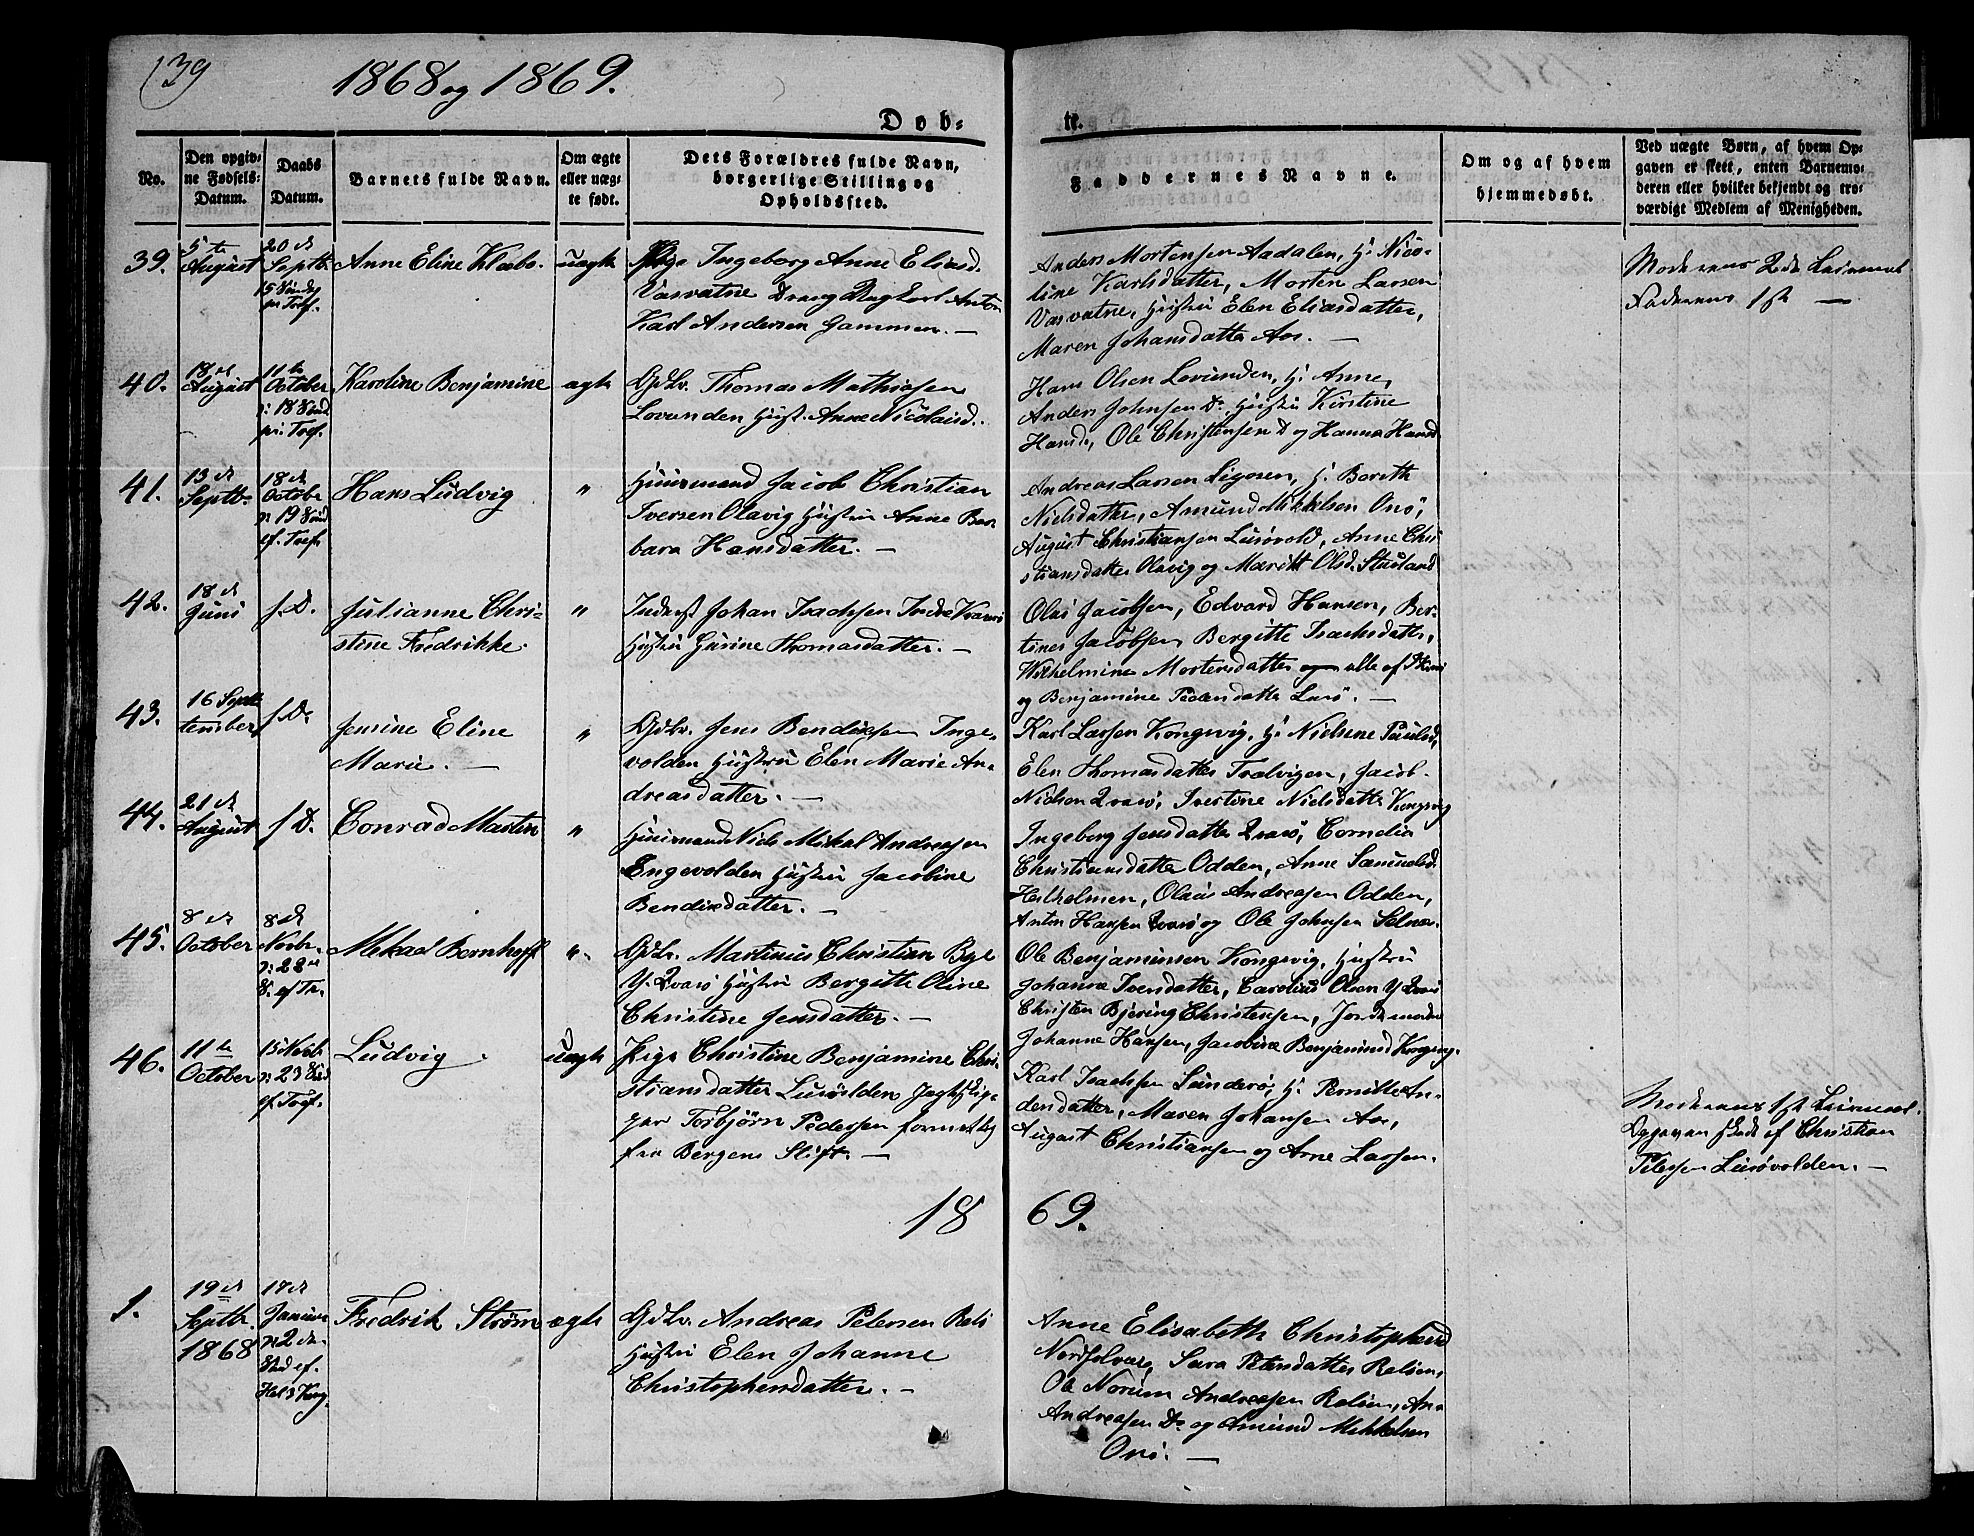 139
1868 og 1869.
Døb-
te.
No.
Den opgiv-
ne Fødsels-
Datum.
Daabs
Datum.
Barnets fulde Navn.
Om ægte
eller uæg-
te født.
Dets Forældres fulde Navn,
borgerlige Stilling og
Opholdssted.
Faddernes Navne.
Om og af hvem
hjemmedøbt.
Ved uægte Børn, af hvem Op-
gaven er skeet, enten Barnemo-
deren eller hvilket bekjendt og tro-
værdigt Medlem af Menigheden.
39.
5te
August
20de
Septb.
15 Søndag
Tref.
Anne Eline Klæbo.
uægte
Pige Ingeborg Anne Eliasd.
Vasvatne Dreng Anton
Karl Andersen Gammen. —
Anders Mortensen Aadalen, H: Nico-
line Karlsdatter, Morten Larsen
Vasvatne, Hustru Elen Eliasdatter,
Maren Johansdatter Aas. —
Moderens 2de Leiermaal
Faderens 1ste —
40.
18de
August
11te
October
18 Sønd
Tref.
Karoline Benjamine
ægte
Gdbr. Thomas Mathiasen
Lovunden Hust. Anne Nicolaisd.
Hans Olsen Lovunden, H: Anne,
Anders Johnsen Do, Hustru Kirstine
Hansd., Ole Christensen D og Hanna Hansd
41.
13de
Septb.
18de
October
19 Sønd
ef. Tref.
Hans Ludvig
"
Huusmand Jacob Christian
Iversen Olavig Hustru Anne Bar-
bara Hansdatter. —
Andreas Larsen H: Bereth
Nielsdatter, Amund Mikkelsen Onø,
August Christiansen Lurøvold, Anne Chri
stiansdatter Olavig og Maritt Olsd. Stuvland
42.
18de
Juni
s. D.
Julianne Chri-
stine Fredrikke.
"
Inderst Johan Isachsen Indre Kvarø
Hustru Gurine Thomasdatter. —
Olai Jacobsen, Edvard Hansen, Ber-
tines Jacobsen Bergitte Isachsdatter,
Wilhelmine Mortensdatter alle af
og Benjamine Pedersdatter Lurø. —
43.
16 Sept
tember
s. D.
Jensine Eline
Marie. —
"
Gdbr. Jens Bendixsen Inge-
volden Hustru Elen Marie An-
dreasdatter. —
Karl Larsen Kongsvig, H: Nielsine Paulsd,
Elen Thomasdatter Trælvigen, Jacob
Nielsen Qvarø, Ivertine Nielsdatter Kongsvig
44.
21de
August
s. D.
Conrad Martin
"
Huusmand Niels Mikal Andreasen
Engevolden Hustru Jacobine
Bendixdatter. —
Ingeborg Jensdatter Qvarø, Cornelia
Christiansdatter Odden, Anne Samuelsd.
Heilholmen, Olaus Andreasen Odden,
Anton Hansen Qvarø og Ole Johnsen Selnæs.
45.
8de
October
8de
Novbr.
22de
S. ef Tr.
Mikael Bernhoff
"
Gdbr. Martinus Christian
Y. Qvarø Hustru Bergitte Oline
Christine Jensdatter. —
Ole Benjaminsen Kongsvig, Hustru
Johanna Iversdatter, Carolius Olsen Y Qvarø
Christen Bjering Christensen, Jordemoder
Johanne Hansen, Jacobine Benjaminsd Kongsvig.
46.
11te
October
15 Novb.
23 Sønd
ef. Tref.
Ludvig
uægte
Pige Christine Benjamine Chri-
stiansdatter Lurøvolden
Torbjørn Pedersen
fra Bergens Stift. —
Karl Isachsen Sunderø, H: Pernille An-
dersdatter, Maren Johansen Aas,
August Christiansen og Arne Larsen.
Moderens 1ste Leiermaal.
Opgaven skede af Christian
Petersen Lurøvolden. —
18 69.
1.
19de
Septbr.
1868
17de
Januar
2 den
Sønd ef.
Hel. 3 Kong.
Fredrik Strøm
ægte
Gdbr. Andreas Petersen
Hustru Elen Johanne
Christophersdatter. —
Anne Elisabeth Christophersd
Nordsolvær, Sara Petersdatter
Ole Norum Andreasen An-
Andreasen Do og Amund Mikkelsen
Onø. —